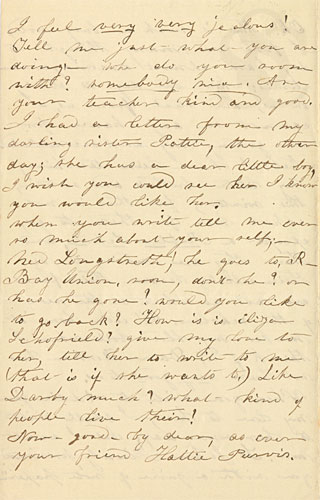 I feel very very jealous!
Tell me just what you are
doing— who do you room
with? somebody nice. Are
your teachers kind and good.
I had a letter from my
darling sister Pattie, the other
day; she has a dear little boy,
I wish you could see her I know
you would like her.
when you write tell me ever
so much about your self;—
Ned Longstreth! he goes to R—
Bay Union, soon, don't he? or
has he gone? would you like
to go back? How is is eliza
Schofield? give my love to
her, tell her to write to me
(that is if she wants to,) Like
Darby much? what kind of
people live their!
Now— good— by dear, as ever
your friend Hattie Purvis.